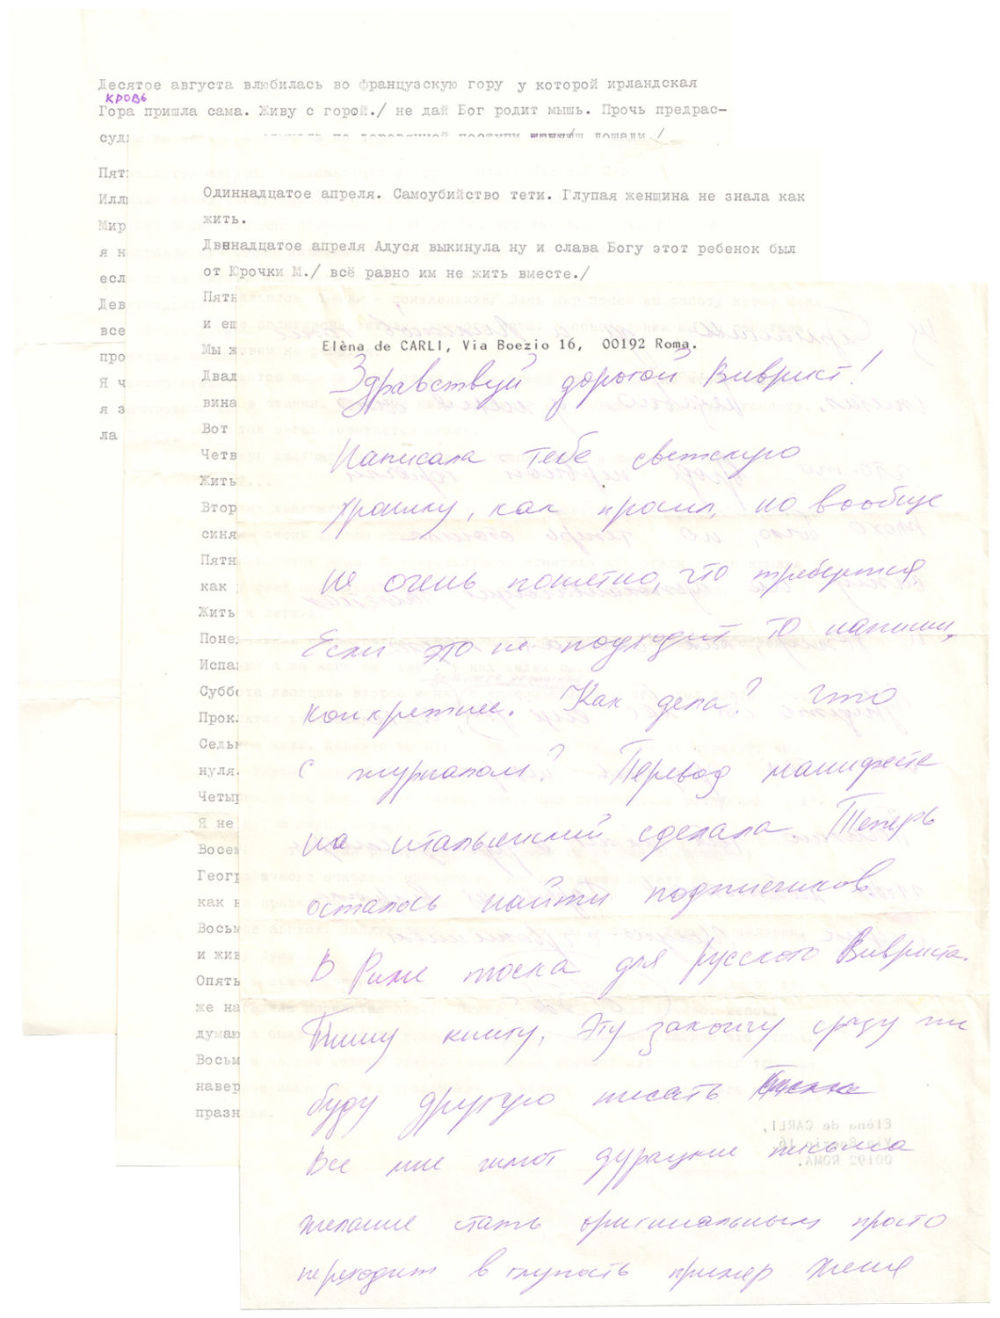 Десятое августа влюбилась во французскую гору у которой ирландская
кровь
Гора пришла сама. Живу с горой./ не дай Бог родит мышь. Прочь предрас-
суд
Пят
Илл
Мир
я н
есл
Дев
все
про
Я ч
я з
ла
Одиннадцатое апреля. Самоубийство тети. Глупая женщина не знала как
жить.
Двенадцатое апреля Адуся выкинула ну и слава Богу этот ребенок был
от Юрочки М./ всё равно им не жить вместе./
Пятн
и ещ
Мы ж
Двад
вина
Вот
Четв
Жить
Втор
синя
Пятн
как
Жить
Поне
Испа
Суббо
Прокл
Седьм
нуля.
Четыр
Я не
Восем
Геогр
как н
Восьм
и жив
Опять
же на
думаю
Восьм
навер
празн
Elèna de CARLI, Via Boezio 16, 00192 Roma.
Здравствуй дорогой Виврист!
Написала тебе светскую
хронику, как просил, но вообще
не очень понятно, что требуется
Если это не подходит то напиши,
конкретнее. Как дела? Что
с журналом? Перевод манифеста
на итальянский сделала Теперь
осталось найти подписчиков
В Риме тоска для русского Вивриста.
Пишу книгу, эту закончу сразу же
буду другую писать
Все мне шлют дурацкие письма
желание стать оригинальным просто
переходит в глупость пример